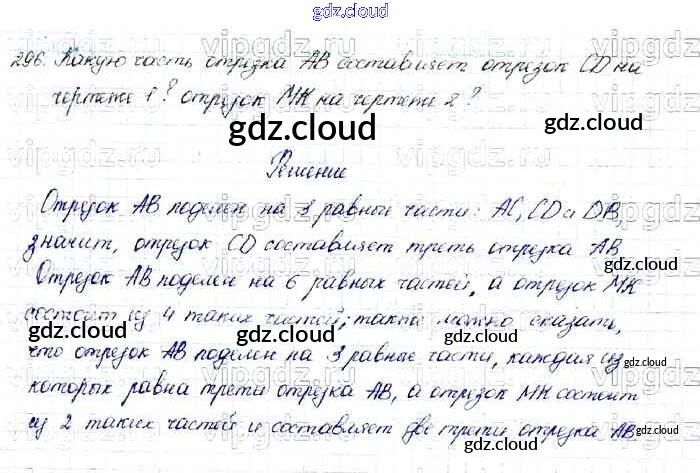 gdz.cloud
296. Какую часть отрезка АВ составляет отрезок CD на
чертеже 1? отрезок МК на чертеже 2?
gdz.cloud
gdz.cloud
Решение
Отрезок АВ поделен на 3 равные части: AC, CD и DB,
значит, отрезок CD составляет треть отрезка АВ
gdz.cloud
Отрезок АВ поделен на 6 равных частей, а отрезок МК
gdz.cloud
состоит из 4 таких частей; также можно сказать,
gdz.cloud
gdz.cloud
что отрезок АВ поделен на 3 равные части, каждая из
gdz.cloud
которых равна трети отрезка АВ, а отрезок МК состоит
gdz.cloud
gdz.cloud
из 2 таких частей и составляет две трети отрезка АВ
gdz.cloud
gdz.cloud
gdz.cloud